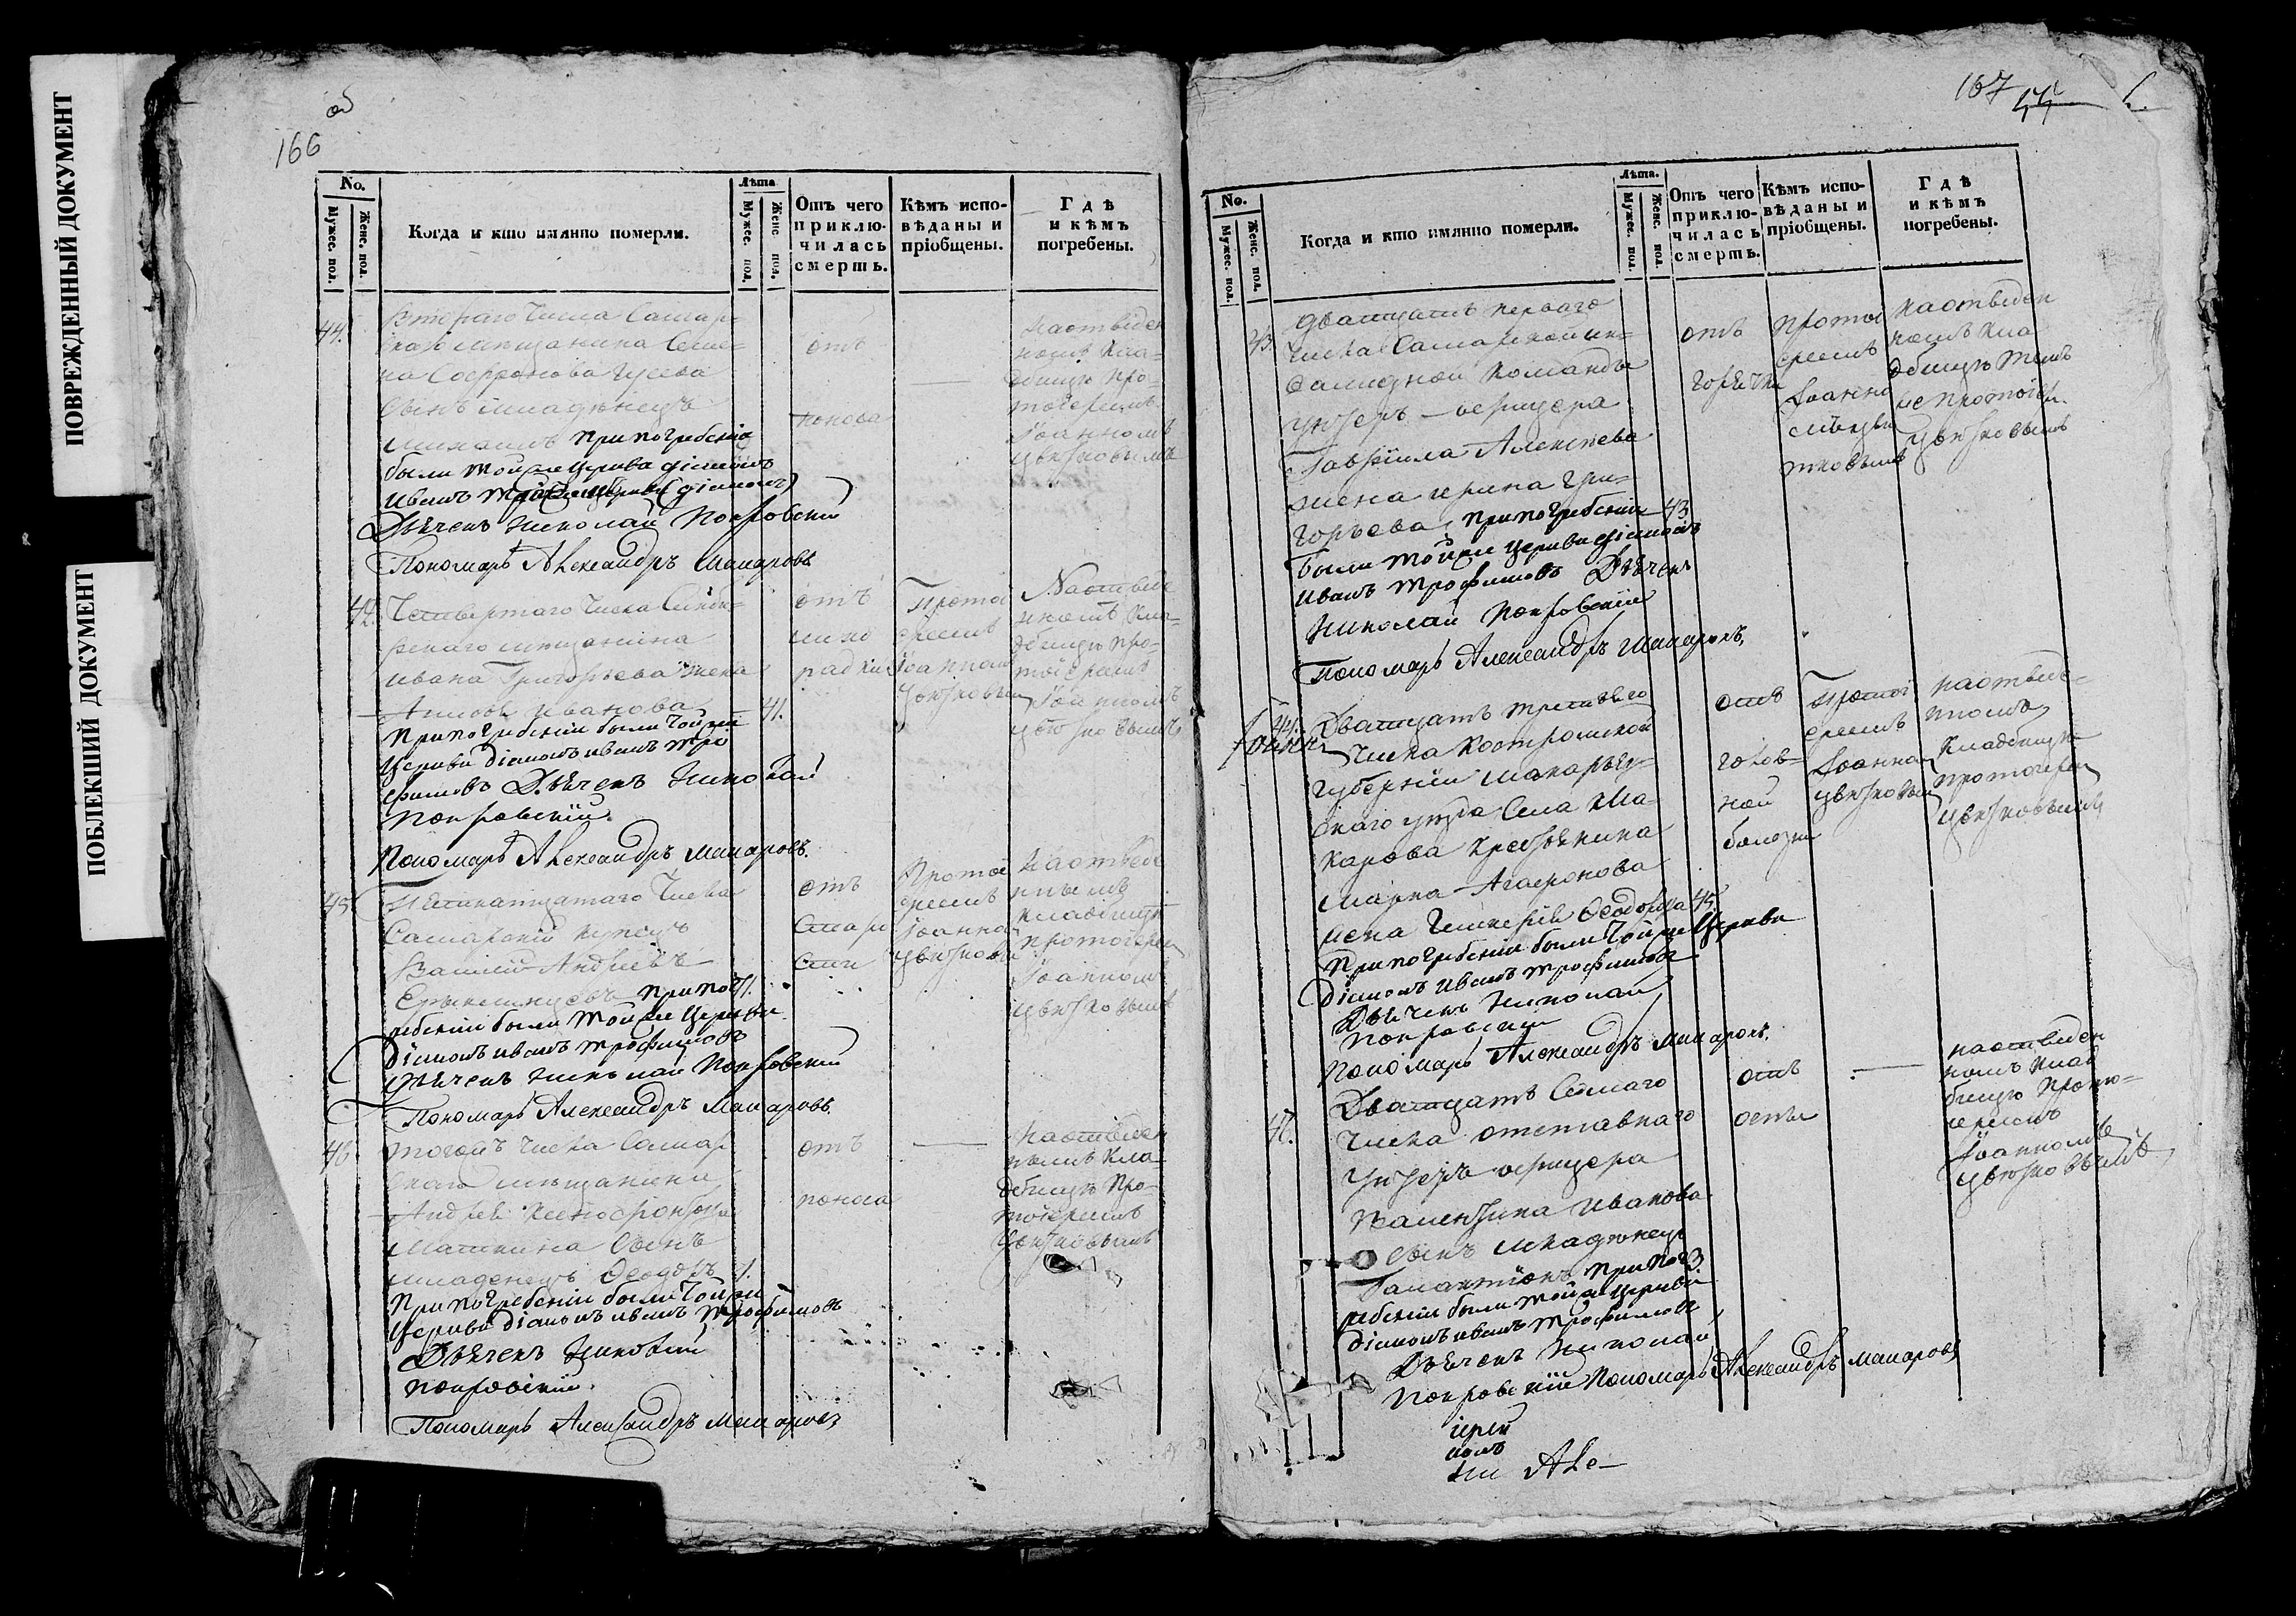 ПОВРЕЖДЕННЫЙ ДОКУМЕНТ
ПОБЛЕКШИЙ ДОКУМЕНТ
об
166
No.
Мужес. пол.
Женс. пол.
Когда и кто имянно померли.
Лѣта
Мужес. пол.
Женс. пол.
Отъ чего
приклю-
чилась
смерть.
Кѣмъ испо-
вѣданы и
пріобщены.
Гдѣ
и кѣмъ
погребены.
44.
Втораго Числа Самар-
скаго мѣщанина Семе-
на Софронова Гусева
Сынъ младенецъ
Михаилъ при погребеніи
были тойже Церкви діаконъ
Иванъ
Дьячекъ Николай Покровскій
Пономарь Александръ Макаровъ
отъ
поноса
На отведен
номъ кла-
дбищѣ про-
тоіереемъ
Іоанномъ
Цвѣтковымъ
42.
Четвертаго Числа Симби-
рскаго мѣщанина
Ивана Григорьева жена
Иванова
41.
При погребеніи были тойже
Церкви діаконъ Иванъ Тро
фимовъ Дьячекъ Николай
Покровскій
Пономарь Александръ Макаровъ.
отъ
лихо
радки
Протоі
ереемъ
Іоанном
Цвѣтковым
На отведе
нномъ кла-
дбищѣ про-
тоіереемъ
Іоанномъ
Цвѣтковымъ
45.
Пятнатцатаго Числа
Самарскій купецъ
Василій Андреевъ
при пог
71.
ребеніи были тойже Церкви
Діаконъ Иванъ Трофимовъ
Дьячекъ Николай Покровскій
Пономарь Александръ Макаровъ
отъ
Старо
сти
Протоі
ереемъ
Іоанно
Цвѣтковы
На отведе
нномъ
кладбищѣ
протоіерее
Іоанномъ
Цвѣтковымъ
46
тогожъ Числа Самар
скаго мѣщанина
Андрея Ксенофонтова
Сынъ
младенецъ Ѳеодоръ
1.
При погребеніи были тойже
Церкви діаконъ Иванъ Трофимовъ
Дьячекъ Николай
Покровскій.
Пономарь Александръ Макаровъ
отъ
поноса
На отведен
номъ кла-
дбищѣ про-
тоіереемъ
Цвѣтковымъ
167
44
No.
Мужес. пол.
Женс. пол.
Когда и кто имянно померли.
Лѣта.
Мужес. пол.
Женс. пол.
Отъ чего
приклю-
чилась
смерть.
Кѣмъ испо-
вѣданы и
пріобщены.
Гдѣ
и кѣмъ
погребены.
43.
Дватцать перваго
числа Самарской ин-
валидной команды
унтеръ-офицера
Гавріила Алексѣева
жена Ирина Гри-
горьева, при погребеніи
43
были тойже Церкви діаконъ
Иванъ Трофимовъ Дьячекъ
Николай Покровскій
Пономарь Александръ Макаровъ,
отъ
горячки
Протоі
ереемъ
Іоанно
мъ Цвѣ
тковымъ
На отведен
номъ кла
дбищѣ темъ
же протоіер.
Цвѣтковымъ
44.
Дватцать третьяго
Числа Костромской
губерніи Макарьев-
скаго уѣзда Села Ма-
карова крестьянина
Марка Агафонова
жена Гликерія Ѳеодорова
45.
При погребеніи были тойже Церкви
Діаконъ Иванъ Трофимовъ
Дьячекъ Николай
Покровскій
Пономарь Александръ Макаровъ.
отъ
голов-
ной
болезни
Протоі
ереемъ
Іоанном
Цвѣтковым
На отведе-
нномъ
кладбищѣ
протоіерее
Цвѣтковымъ
47.
Дватцать Седмаго
Числа отставнаго
Унтеръ офицера
Валентина Иванова
Сынъ младенецъ
Галактіонъ при пог
3
ребеніи были тойже Церкви
Діаконъ Иванъ Трофимовъ
Дьячекъ Николай
Покровскій Пономарь Александръ Макаровъ
отъ
оспы
На отведен
номъ клад
бищѣ прото-
іереемъ
Іоанномъ
Цвѣтковымъ
Але-